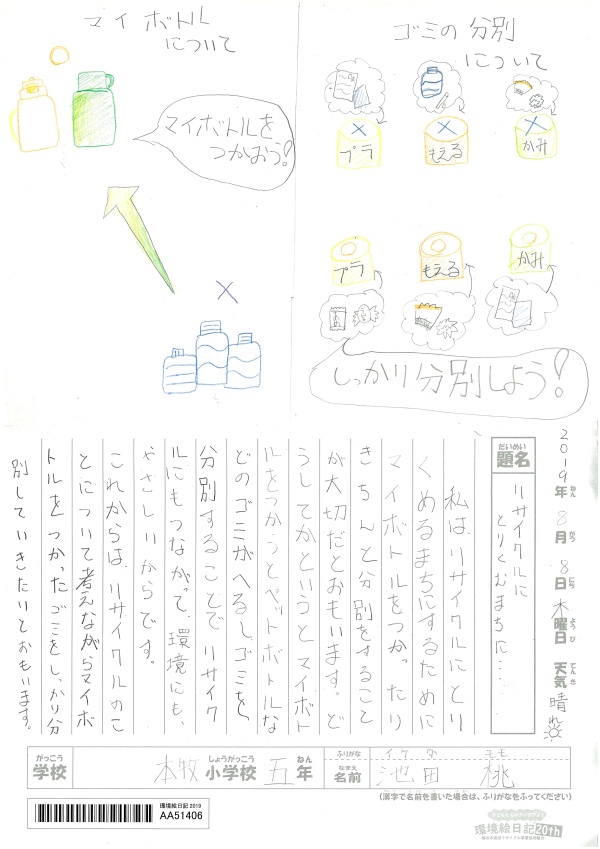 マイボトル
について
マイボトルを
つかおう!
ゴミの分別
について
プラ
もえる
かみ
プラ
もえる
かみ
しっかり分別しよう!
2019年8月8日木曜日 天気 晴れ
ねん がつ にち よう び てん き
だいめい
題名
リサイクルに
とりくむまちに…
私は、リサイクルにとり
くめるまちにするために
マイボトルをつかったり
きちんと分別をすること
が大切だとおもいます。ど
うしてかというとマイボト
ルをつかうとペットボトルな
どのゴミがへるしゴミを
分別することで リサイク
ルにもつながって、環境にも、
やさしいからです。
これからは、リサイクルのこ
とについて考えながらマイボ
トルをつかったゴミをしっかり分
別していきたいとおもいます。
がっこう
学校
本牧
しょうがっこう
小学校
五
ねん
年
ふりがな
イケ ダ モモ
なまえ
名前
池田 桃
(漢字で名前を書いた場合は、ふりがなをふってください)
環境絵日記 2019
AA51406
環境絵日記20th